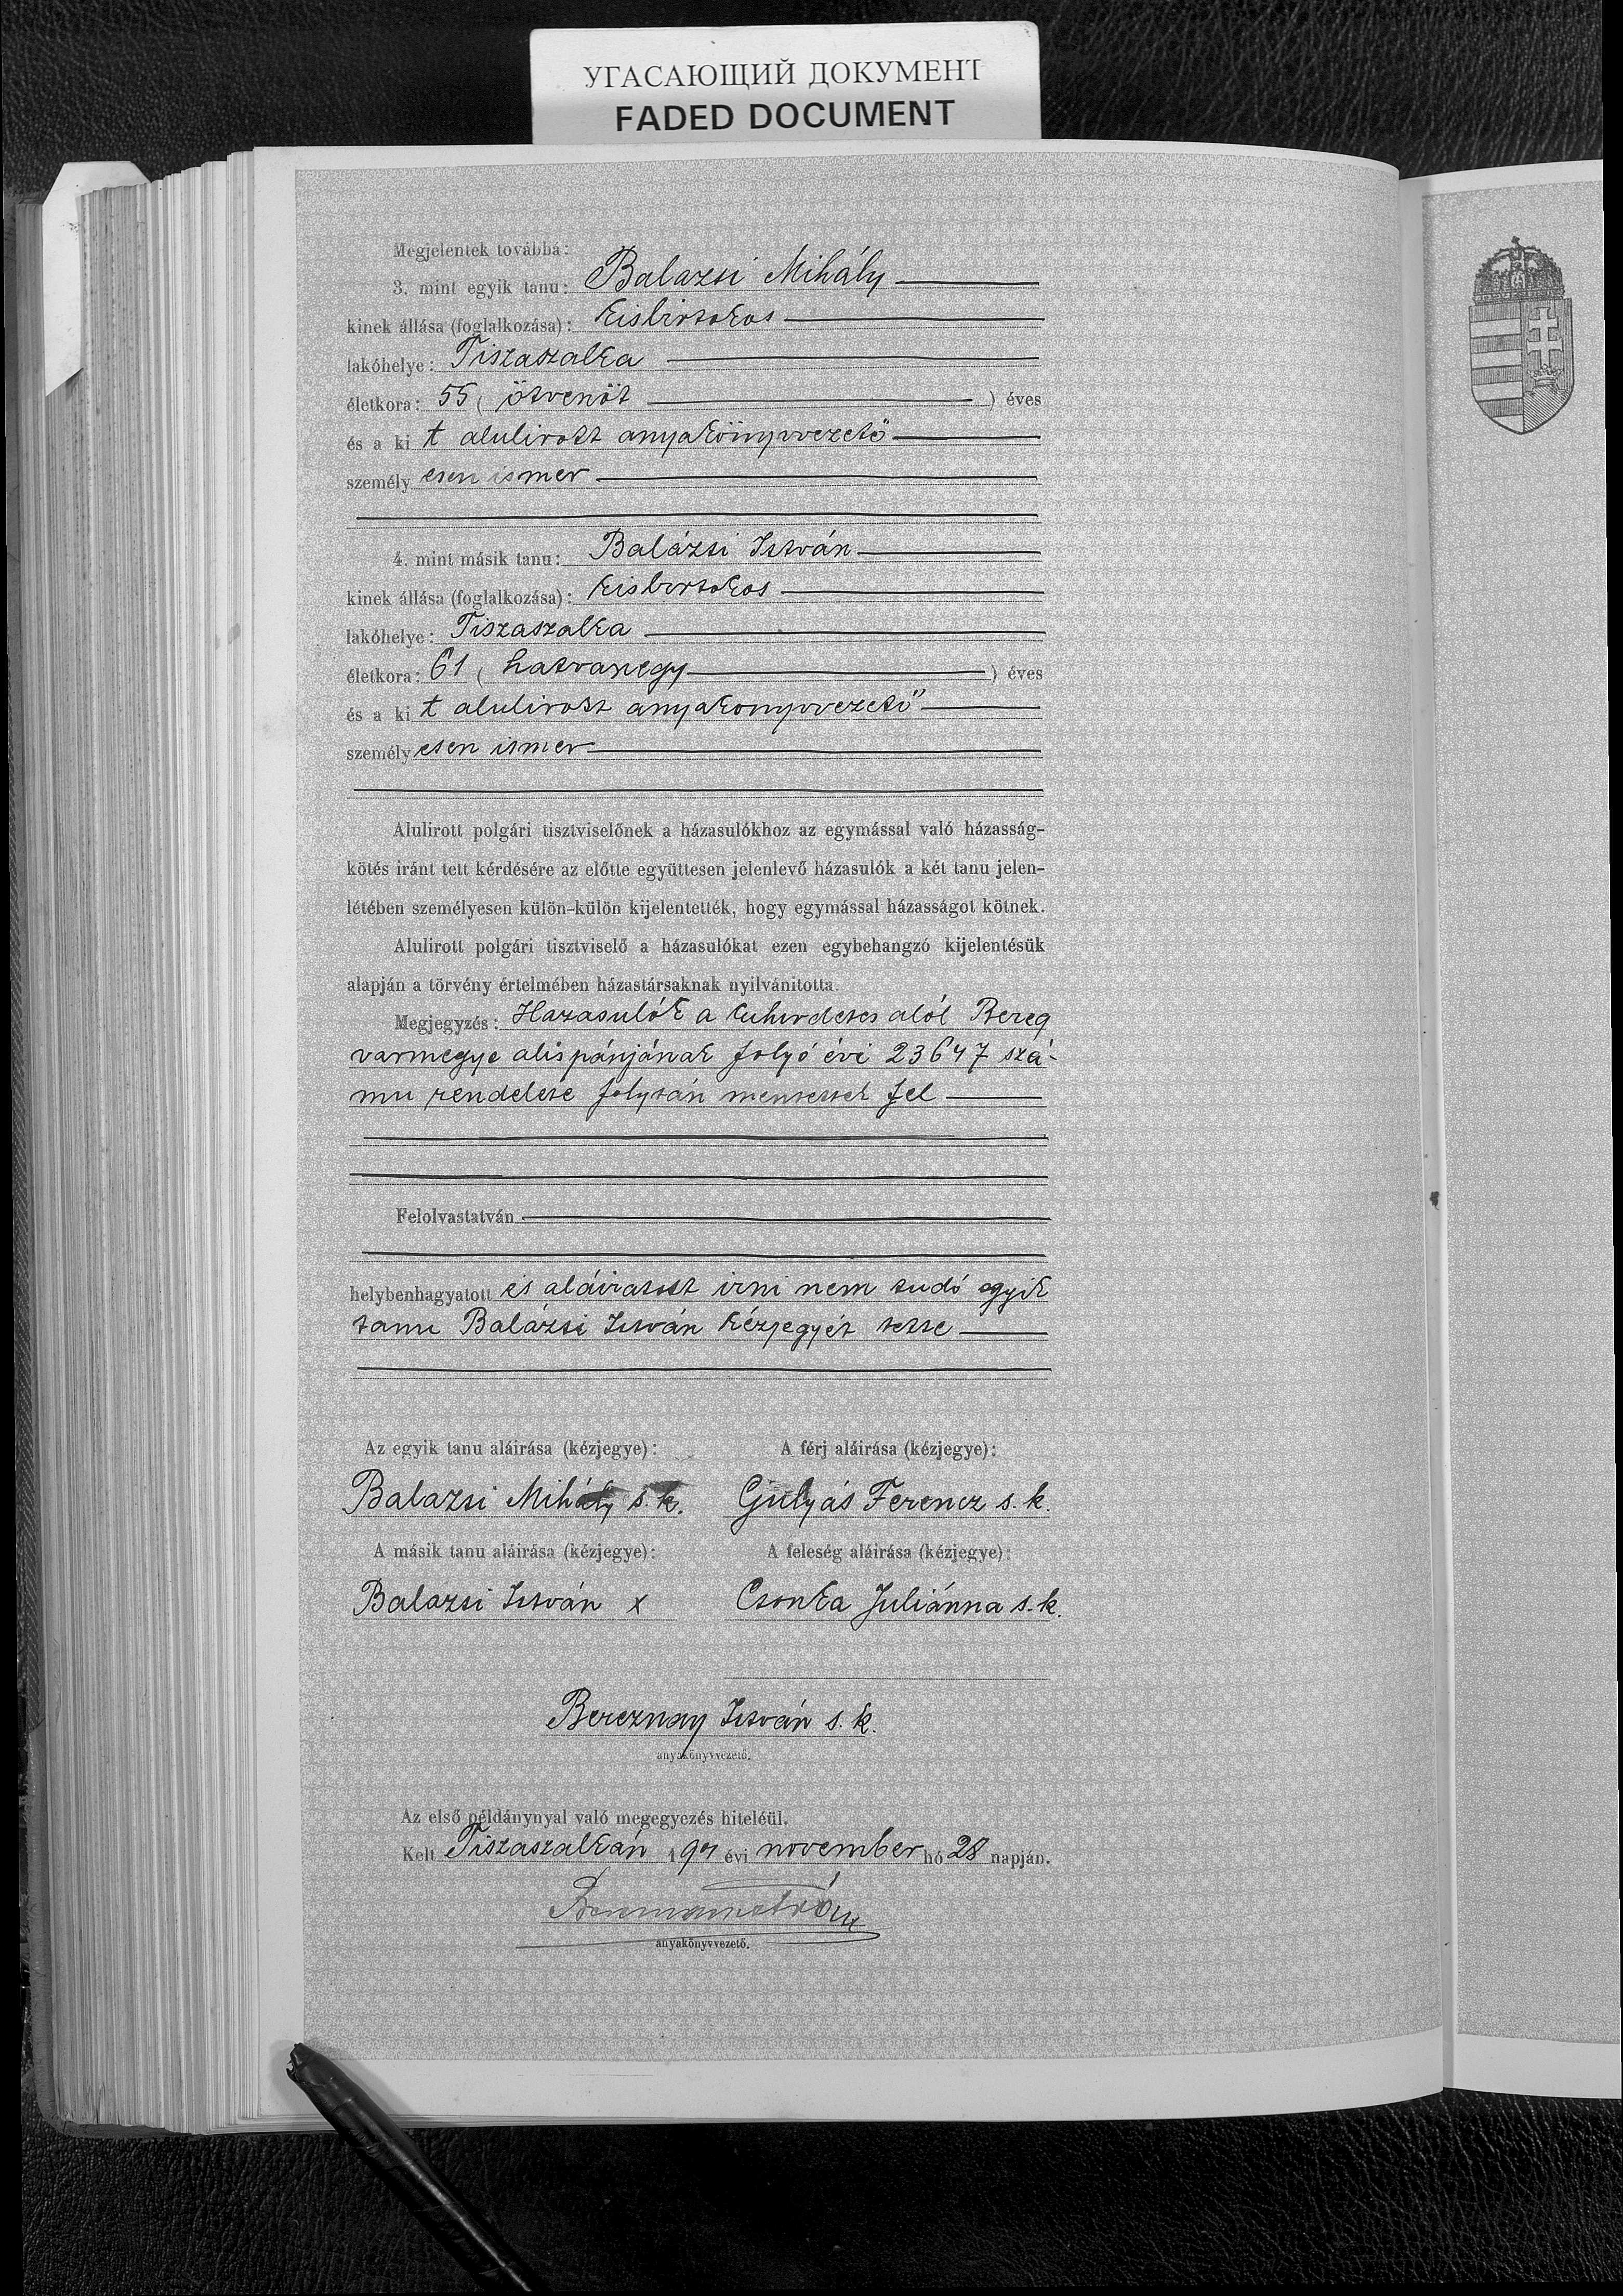 УГАСАЮЩИЙ ДОКУМЕНТ
FADED DOCUMENT
Megjelentek továbbá:
3. mint egyik tanu: Balazsi Mihály
kinek állása (foglalkozása): Kisbirtokos
lakóhelye: Tiszaszalka
életkora: 55 ( ötvenöt ) éves
és a ki t alulirott anyakönyvvezető
személy esen ismer
4. mint másik tanu: Balázsi István
kinek állása (foglalkozása): Kisbirtokos
lakóhelye: Tiszaszalka
életkora: 61 ( hatvanegy ) éves
és a ki t alulirott anyakonyvvezető
személy esen ismer
Alulirott polgári tisztviselőnek a házasulókhoz az egymással való házasság-
kötés iránt tett kérdésére az előtte együttesen jelenlevő házasulók a két tanu jelen-
létében személyesen külön-külön kijelentették, hogy egymással házasságot kötnek.
Alulirott polgári tisztviselő a házasulókat ezen egybehangzó kijelentésük
alapján a törvény értelmében házastársaknak nyilvánitotta.
Megjegyzés: Hazasulók a kihirdetes alól Bereg
varmegye alispánjának folyó évi 23647 szá-
mu rendelete folytán mentettek fel
Felolvastatván
helybenhagyatott és aláiratott irni nem tudó egyik
tanu Balázsi István kézjegyét tette
Az egyik tanu aláirása (kézjegye):
A férj aláirása (kézjegye):
Balazsi Mihály s. k.
Gulyás Ferencz s. k.
A másik tanu aláirása (kézjegye):
A feleség aláirása (kézjegye):
Balazsi István x
Csonka Juliánna s. k.
Bereznay István s. k.
anyakönyvvezető.
Az első példánynyal való megegyezés hiteléül.
Kelt Tiszaszalkán évi november hó 28 napján.
anyakönyvvezető.